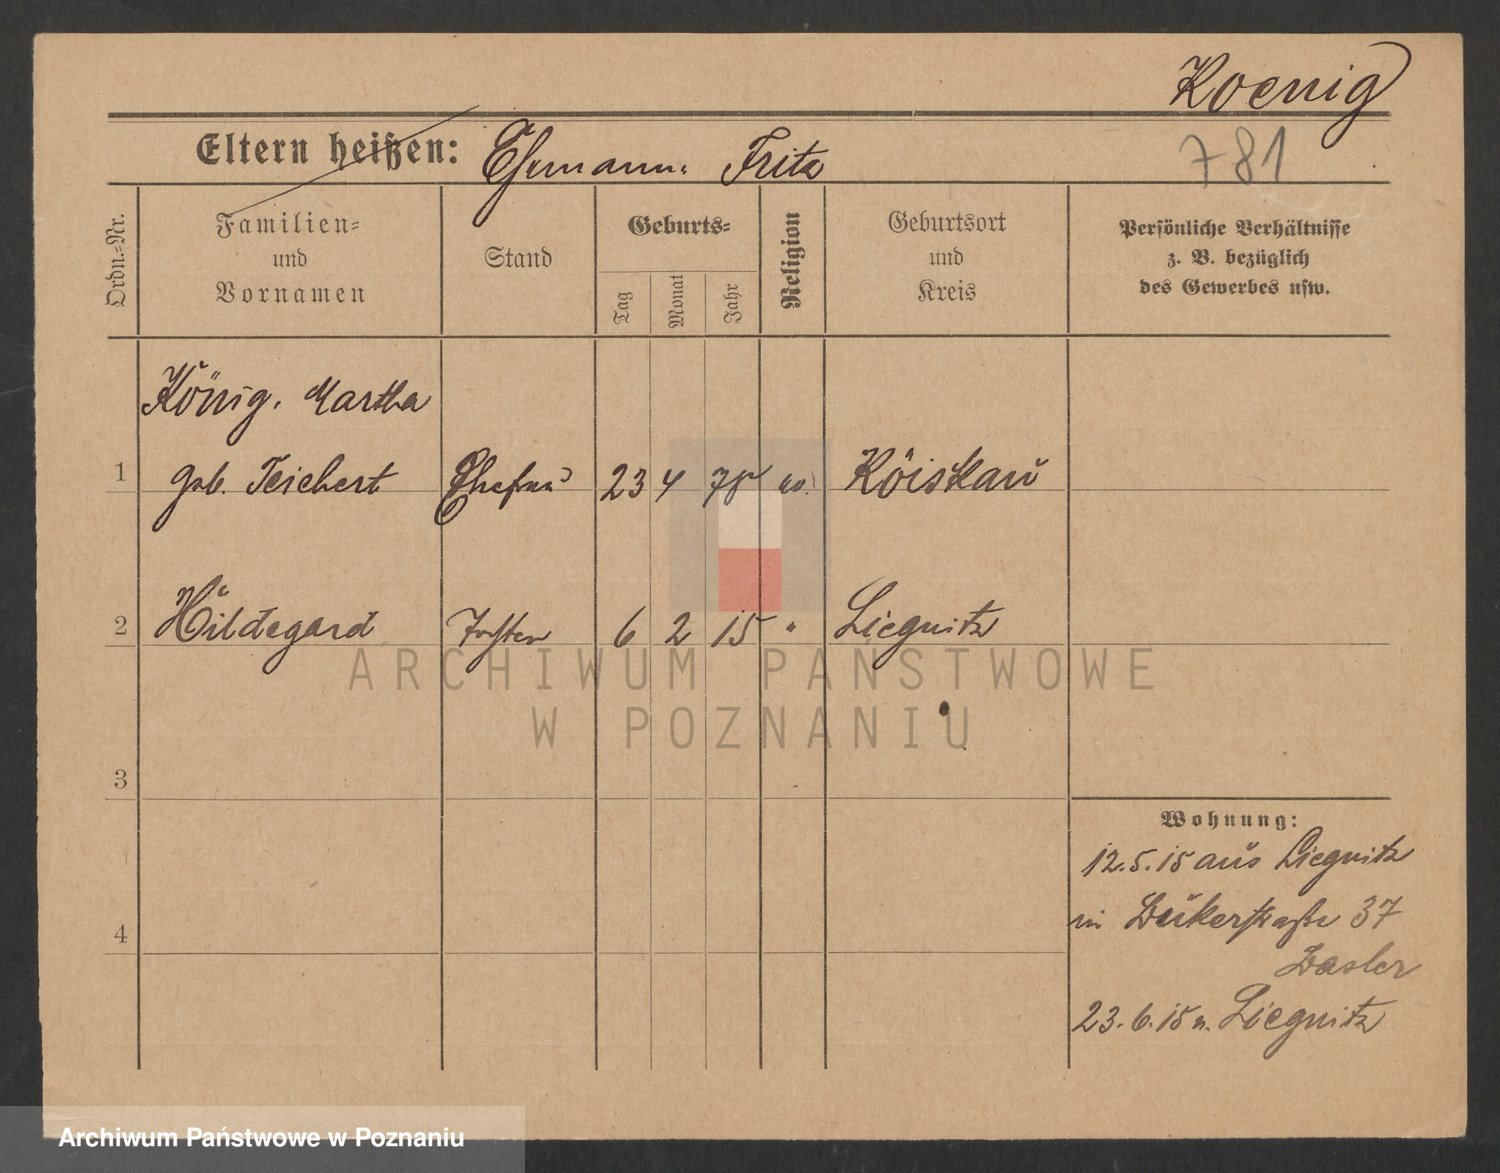 Koenig
781
Eltern heißen: Ehemann: Fritz
Ordn.-Nr.
Familien-
und
Vornamen
Stand
Geburts-
Tag
Monat
Jahr
Religion
Geburtsort
und
Kreis
Persönliche Verhältnisse
z. B. bezüglich
des Gewerbes usw.
König, Martha
1 geb. Teichert Ehefrau 23 4 78 ev. Köiskau
2 Hildegard Tochter 6 2 15 " Liegnitz
3
4
Wohnung:
12.5.15 aus Liegnitz
in 37
23.6.15 n. Liegnitz
ARCHIWUM PAŃSTWOWE
W POZNANIU
Archiwum Państwowe w Poznaniu